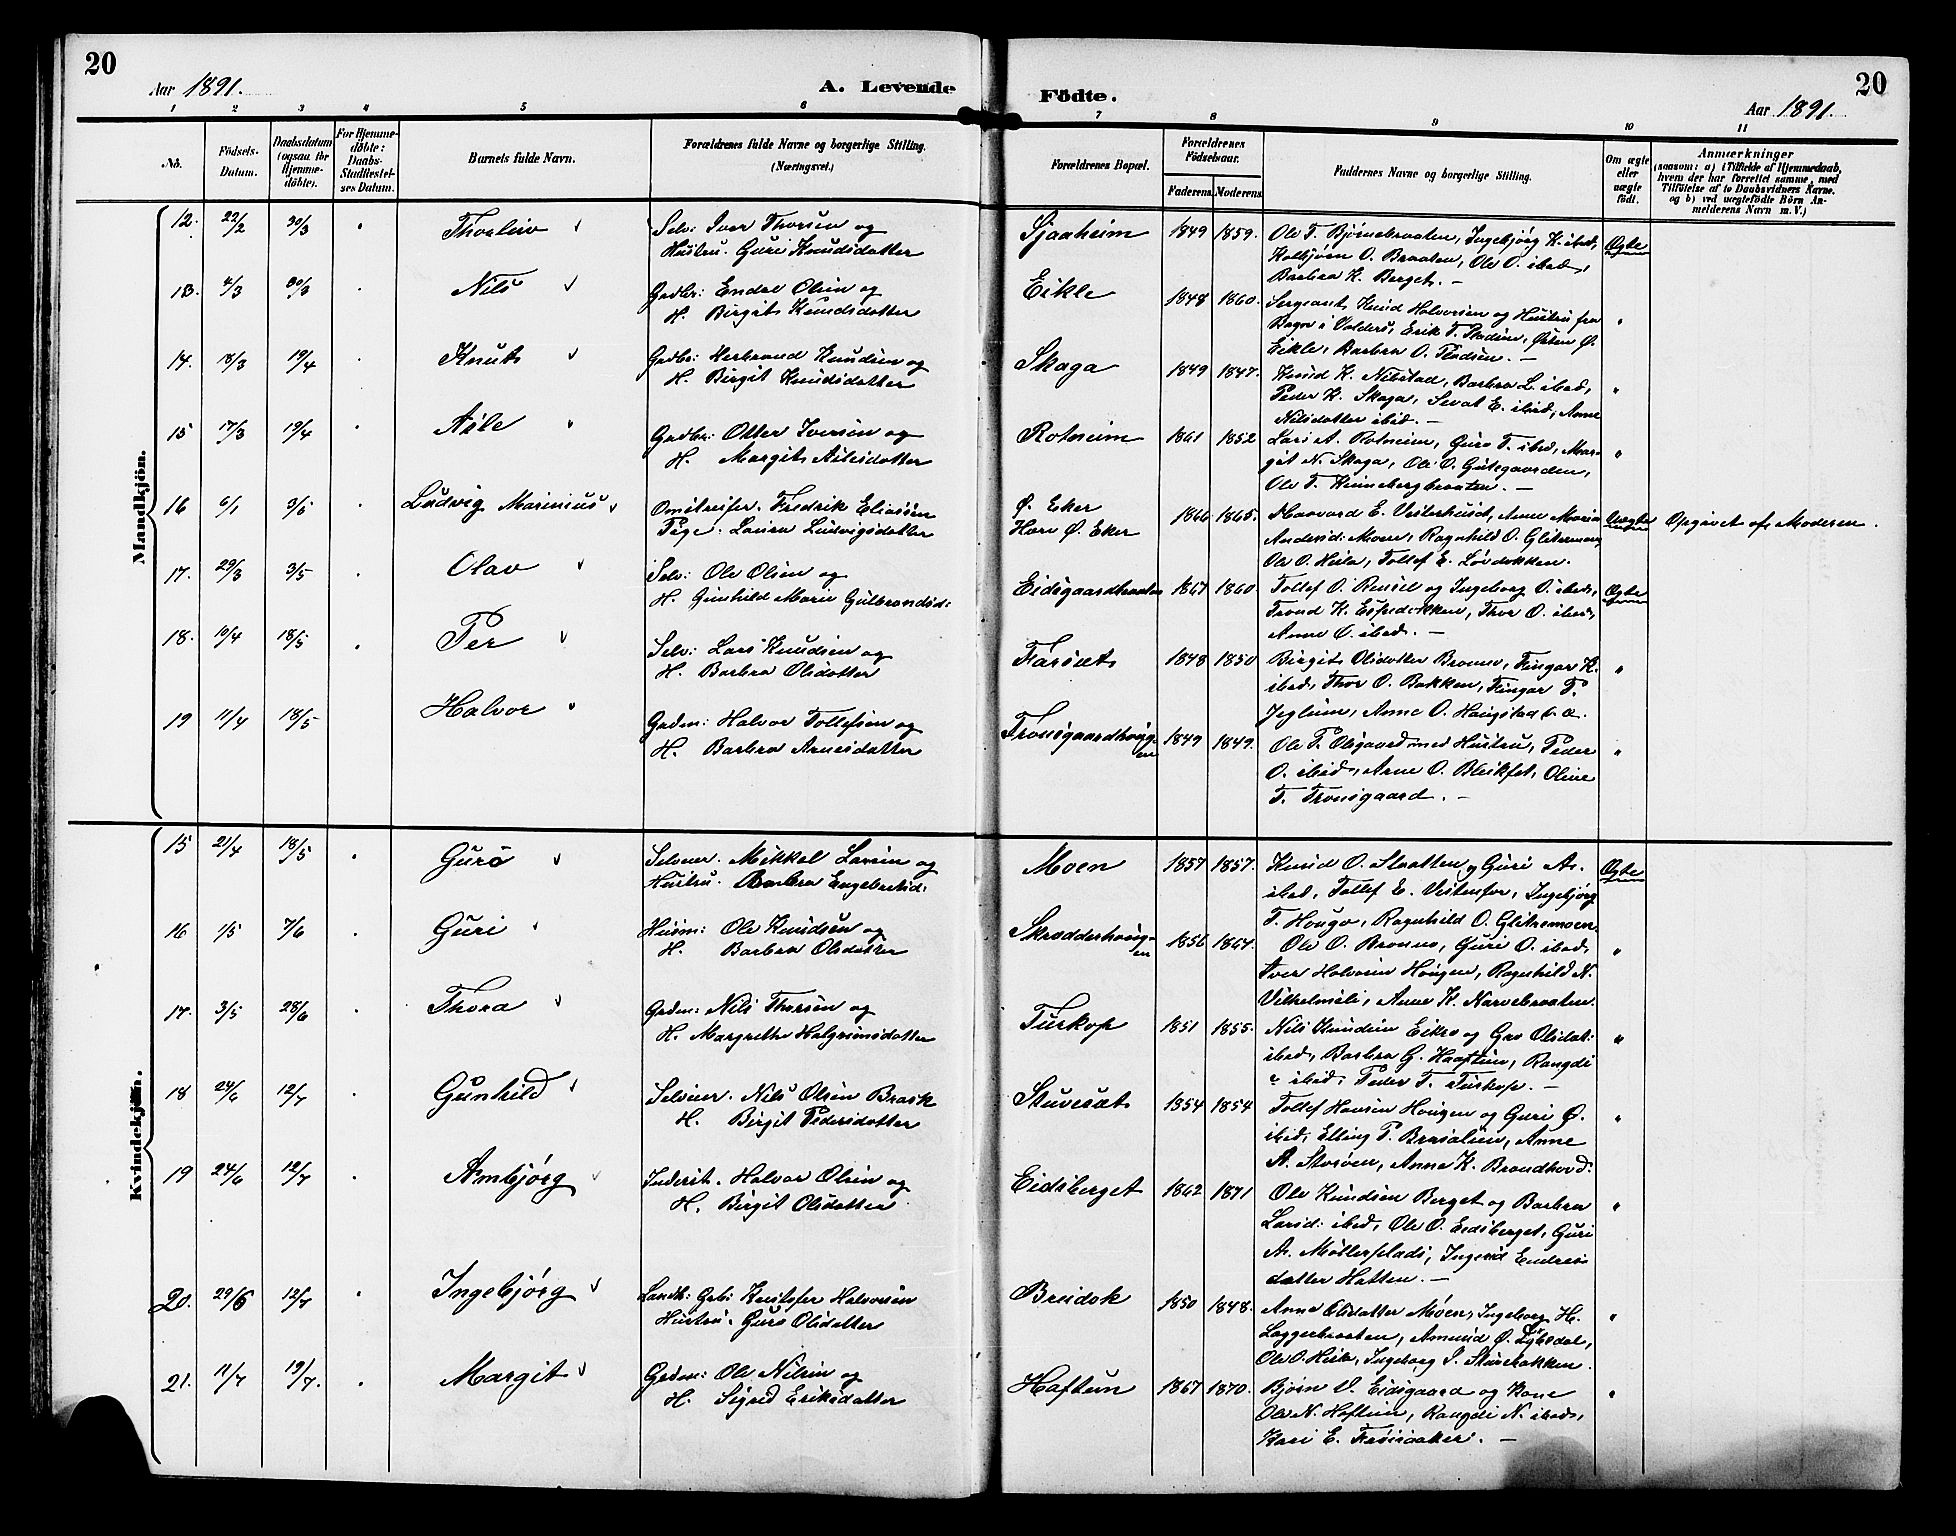 20
Aar 1891.
A. Levende
Födte.
Aar 1891.
20
1 2 3 4 5 6 7 8 9 10 11
No.
Födsels-Datum.
Daabsdatum (ogsaa for Hjemmedøbte).
For Hjemmedøbte: Daabs-Stadfæstelses Datum.
Barnets fulde Navn.
Forældrenes fulde Navne og borgerlige Stilling. (Næringsvei.)
Forældrenes Bopæl.
Forældrenes Födselsaar.
Faderens. Moderens.
Faddernes Navne og borgerlige Stilling.
Om ægte eller uægte födt.
Anmærkninger
(saasom: a) i Tilfælde af Hjemmedaab, hvem der har forrettet samme, med Tilföielse af to Daabsvidners Navne, og b) ved uægtefödte Börn Anmelderens Navn m. V.)
Mandkjön.
12. 22/2 30/3 " Thorleiv Selv: Iver Thorsen og Sjaaheim 1849 1859. Ole T. Bjørnebraaten, Ingebjørg K. ibid, Ægte
Hustru. Guri Knudsdatter Kolbjörn O. Braaten, Ole O. ibid,
Barbra K. Berget. —
13. 4/3 30/3 Nils Grdbr: Endre Olsen og Eikle 1848 1860. Sergeant Knud Halvorsen og Hustru fra "
H. Birgit Knudsdatter Bagn i Valders, Erik T. Pladsen, Østen Ø.
Eikle, Barbra O. Pladsen. —
14. 18/3 19/4 Knut Grdbr: Herbrand Knudsen og Skaga 1849 1847. Knud K. Nibstad, Barbra L. ibid, "
H. Birgit Knudsdatter Peder K. Skaga, Sevat E. ibid, Anne
Nilsdatter ibid. —
15 17/3 19/4 Asle Grdbr: Otter Iversen og Rotneim 1861 1852 Lars A. Rotneim, Guro T. ibid, Mar- "
H. Margit Aslesdatter git N. Skaga, Ole O. Gutegaarden,
Ole T. Kinnebergbraaten. —
16 6/1 3/5 Ludvig Marinius Omstreifer. Fredrik Eliassen Ø. Eker 1866 1865. Haavard E. Vesterhuset, Anne Marie Uægte Opgivet af Moderen.
Pige: Laura Ludvigsdatter Hore Ø. Eker Andersd: Moen, Ragnhild O. Glitremoen,
Ole O. Hiela, Tollef E. Løvdokken.
17. 29/3 3/5 Olav Selv: Ole Olsen og Eidsgaardbraaten 1867 1860 Tollef O. Ruust og Ingeborg O. ibid, Ægte
H. Gunhild Marie Gulbrandsd: Trond K. Espedokken, Thor O. ibid,
Anne O. ibid. —
18. 10/4 18/5 Per Selv: Lars Knudsen og Farsæt 1848 1850 Birgit Olsdatter Bromo, Fingar K. "
H. Barbra Olsdatter ibid, Thor O. Bakken, Fingar T.
Jeglum, Anne O. Haugstad o. a.
19 11/4 18/5 Halvor Grdm: Halvor Tollefsen og Tronsgaardhougen 1849 1849. Ole T. Olsgaard med Hustru, Peder "
H. Barbra Arnesdatter O. ibid, Arne O. Bleikfet, Oline
T. Tronsgaard. —
Kvindekjön.
15 21/4 18/5 Guro Selveier. Mikkel Larsen og Moen 1857 1857. Knud O. Slaatten og Guri A. Ægte
Hustru. Barbra Engebretsd: ibid, Tollef E. Vestenfor, Ingebjørg
T. Hougo, Ragnhild O. Glitremoen.
16 1/5 7/6 Guri Huusm: Ole Knudsen og Skrædderhougen 1856 1864. Ole O. Bromo, Guri O. ibid, "
H. Barbra Olsdatter Iver Halvorsen Hougen, Ragnhild N.
Vilhelmsli, Anne K. Narvebraaten.
17. 3/5 28/6 Thora Grdm: Nils Thorsen og Turkop 1851 1855. Nils Knudsen Eikro og Gro Olsdat: "
H. Margrethe Halgrimsdatter ibid, Barbra G. Haaftun, Rangdi
ibid: Peder T. Turkop. —
18 24/6 12/7 Gunhild Selveier. Nils Olsen Brask Stuvesæt 1854 1854 Tollef Hansen Hougen og Guri Ø. "
H. Birgit Pedersdatter ibid, Elling P. Brusalien, Anne
A. Storøen, Anne K. Brandhovd.
19 24/6 12/7 Ambjörg Inderst. Halvor Olsen og Eidsberget 1862 1871 Ole Knudsen Berget og Barbra "
H. Birgit Olsdatter Larsd: ibid, Ole O. Eidsberget, Guri
A. Møllerplads, Ingerid Endres-
datter Hatten. —
20. 29/6 12/7 Ingebjörg Landh: Grb: Kristofer Halvorsen Breidok 1850 1848. Anne Olsdatter Moen, Ingeborg H. "
Hustru. Guro Olsdatter Laggerbraaten, Amund Ø. Lybsdal,
Ole O. Hiela, Ingeborg P. Sturebakken.
21. 11/7 19/7. Margit Grdm: Ole Nilsen og Haftun 1867 1870. Bjørn O. Eidsgaard og Kone "
H. Sigrid Eriksdatter Ole N. Haftun, Rangdi N. ibid,
Kari E. Frøisaaker. —